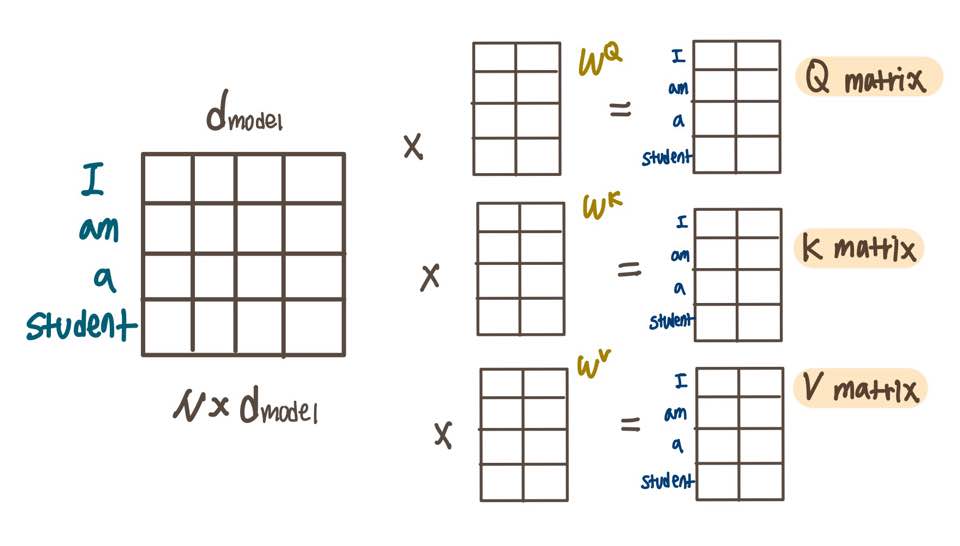 d model
I
am
a
student
N × d model
×
W^Q
=
I
am
a
student
Q matrix
×
W^K
=
I
am
a
student
K matrix
×
W^V
=
I
am
a
student
V matrix